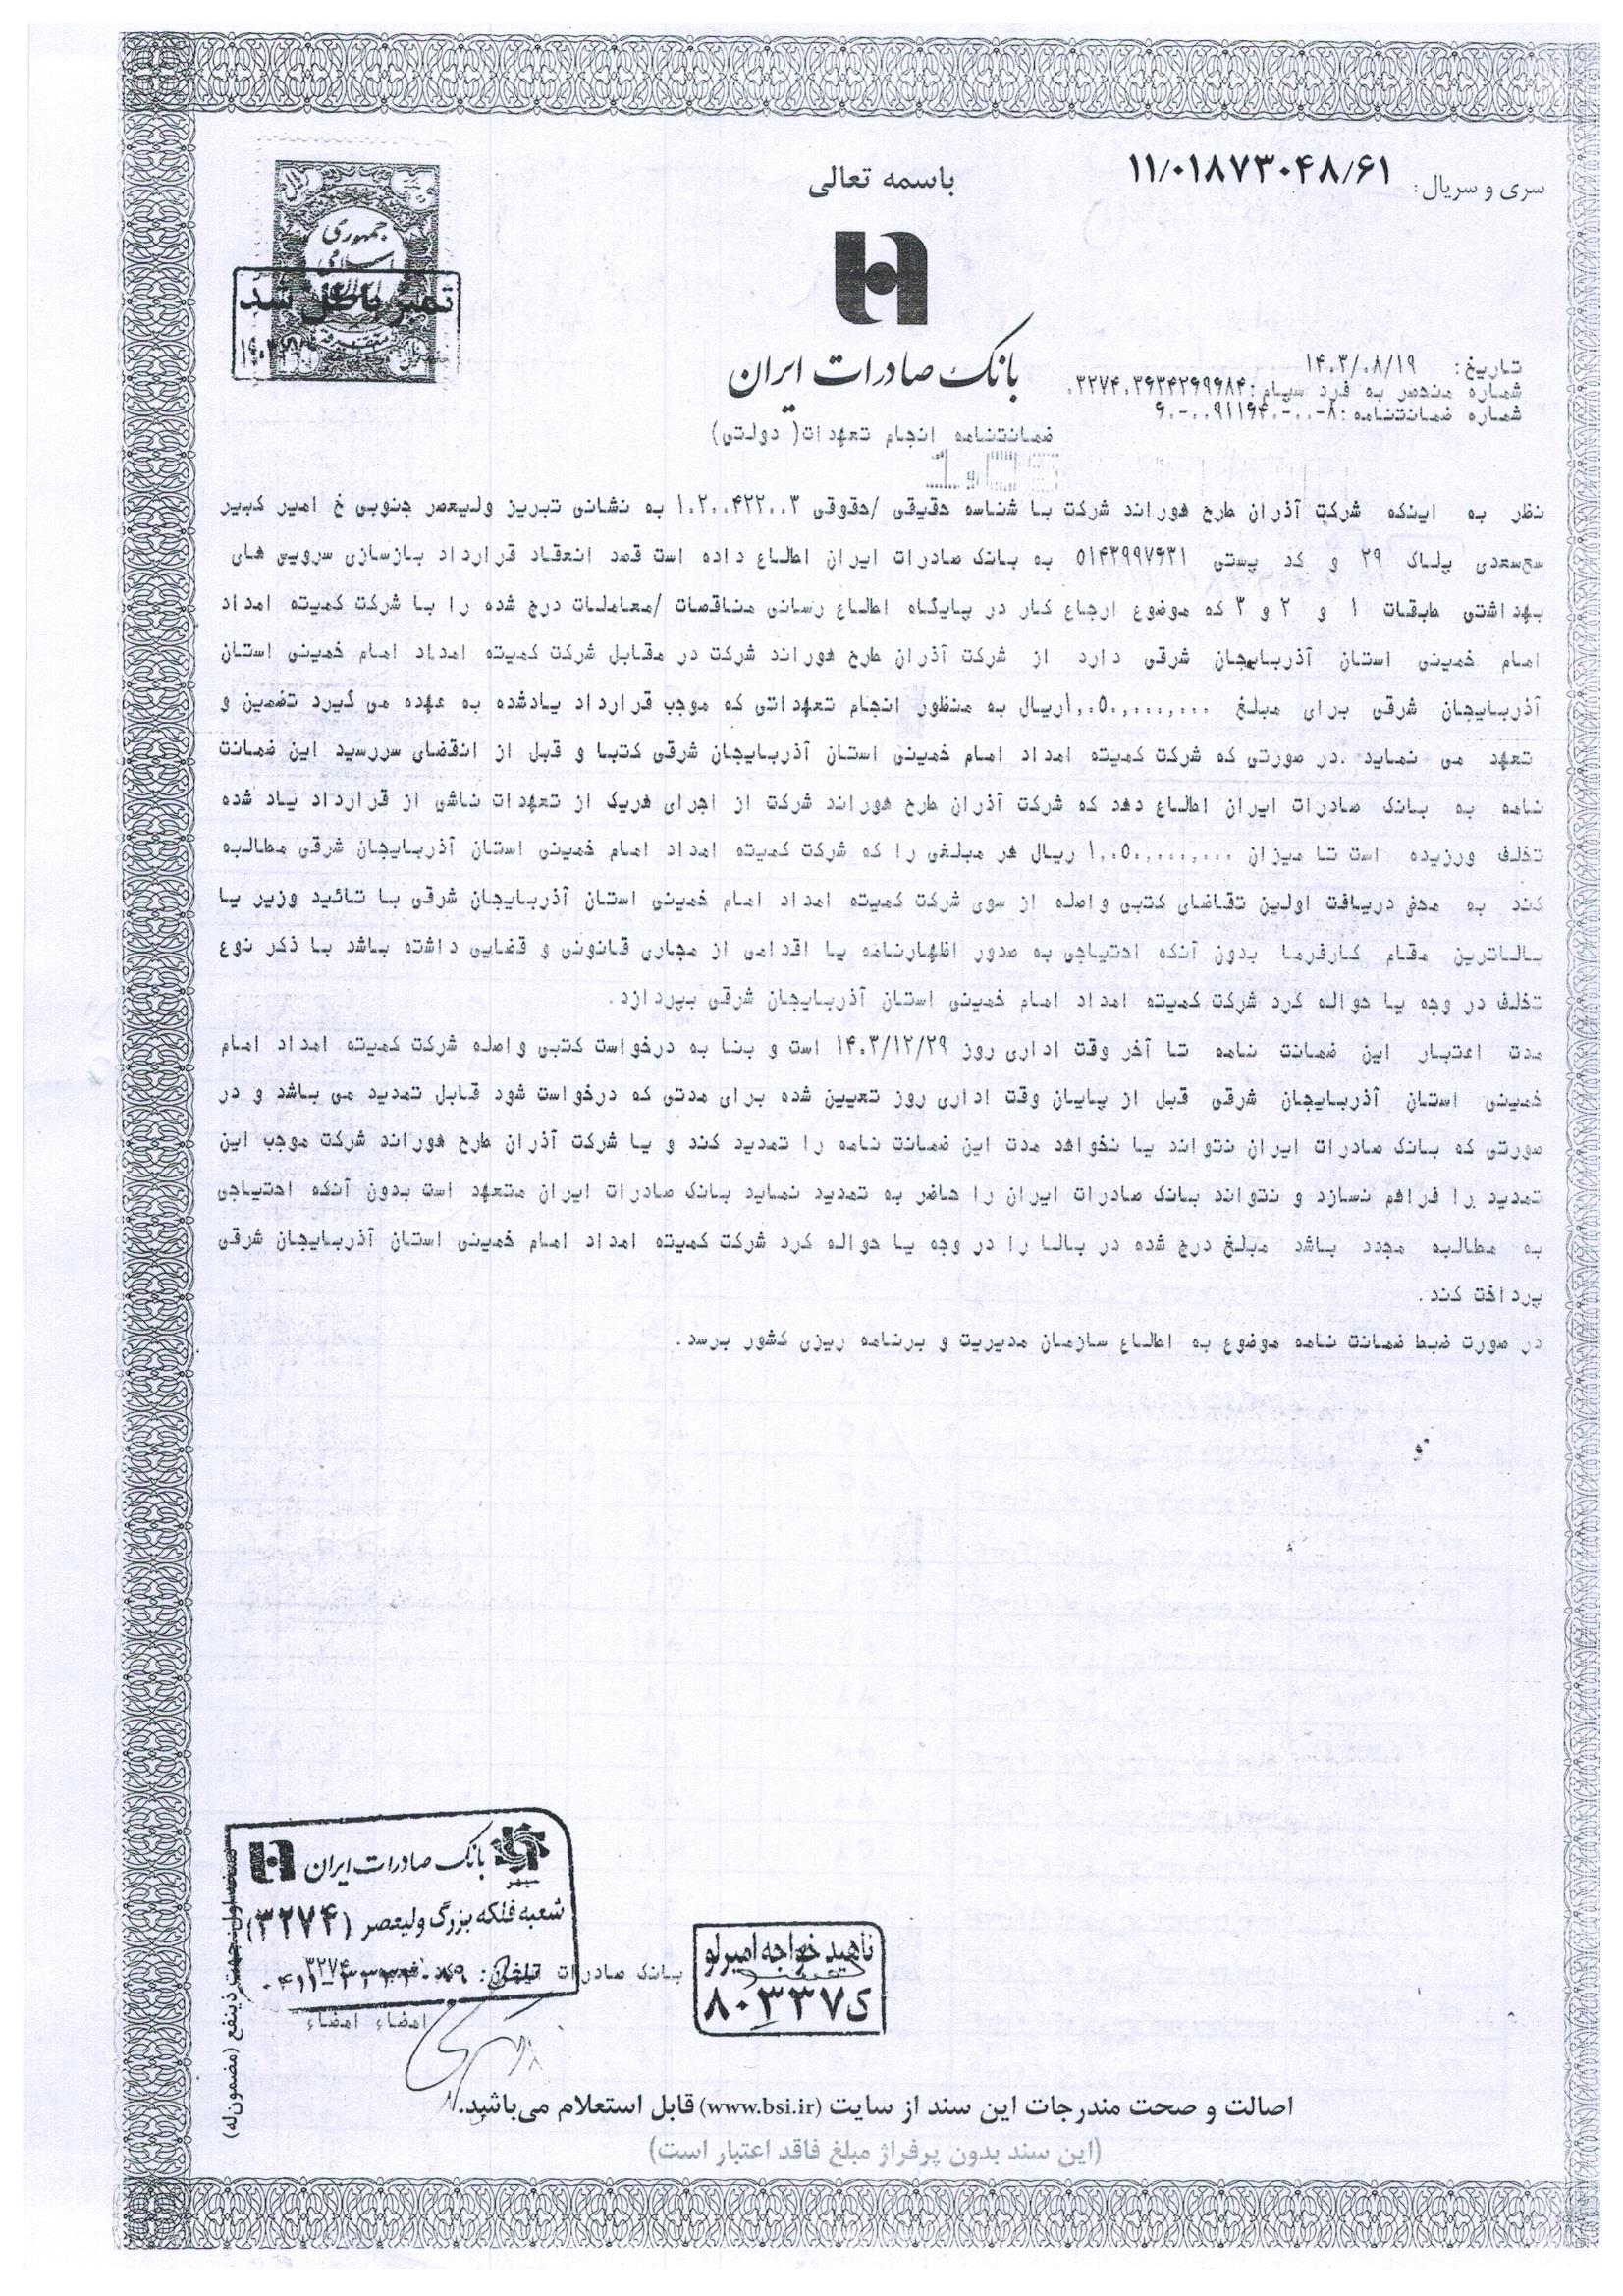 باسمه تعالی
سری و سریال: ۱۱/۰۱۸۷۳۰۴۸/۶۱
جمهوری
تمبر باطل شد
بانک صادرات ایران
تاریخ: ۱۴۰۳/۰۸/۱۹
شماره منحصر به فرد سپام: ۰۳۲۷۴۰۳۶۳۴۲۶۹۹۸۴
شماره ضمانتنامه:
ضمانتنامه انجام تعهدات( دولتی)
نظر به اینکه شرکت آذران طرح هوراند شرکت با شناسه حقیقی /حقوقی ۱۰۲۰۰۴۲۲۰۰۳ به نشانی تبریز ولیعصر جنوبی خ امیر کبیر
سعدی پلاک ۲۹ و کد پستی ۵۱۴۳۹۹۷۶۳۱ به بانک صادرات ایران اطلاع داده است قصد انعقاد قرارداد بازسازی سرویس های
بهداشتی طبقات ۱ و ۲ و ۳ که موضوع ارجاع کار در پایگاه اطلاع رسانی مناقصات /معاملات درج شده را با شرکت کمیته امداد
امام خمینی استان آذربایجان شرقی دارد از شرکت آذران طرح هوراند شرکت در مقابل شرکت کمیته امداد امام خمینی استان
آذربایجان شرقی برای مبلغ ۱,۰۵۰,۰۰۰,۰۰۰ریال به منظور انجام تعهداتی که موجب قرارداد یادشده به عهده می گیرد تضمین و
تعهد می نماید .در صورتی که شرکت کمیته امداد امام خمینی استان آذربایجان شرقی کتبا و قبل از انقضای سررسید این ضمانت
نامه به بانک صادرات ایران اطلاع دهد که شرکت آذران طرح هوراند شرکت از اجرای هریک از تعهدات ناشی از قرارداد یاد شده
تخلف ورزیده است تا میزان ۱,۰۵۰,۰۰۰,۰۰۰ ریال هر مبلغی را که شرکت کمیته امداد امام خمینی استان آذربایجان شرقی مطالبه
کند به محض دریافت اولین تقاضای کتبی واصله از سوی شرکت کمیته امداد امام خمینی استان آذربایجان شرقی با تائید وزیر یا
بالاترین مقام کارفرما بدون آنکه احتیاجی به صدور اظهارنامه یا اقدامی از مجاری قانونی و قضایی داشته باشد با ذکر نوع
تخلف در وجه یا حواله کرد شرکت کمیته امداد امام خمینی استان آذربایجان شرقی بپردازد.
مدت اعتبار این ضمانت نامه تا آخر وقت اداری روز ۱۴۰۳/۱۲/۲۹ است و بنا به درخواست کتبی واصله شرکت کمیته امداد امام
خمینی استان آذربایجان شرقی قبل از پایان وقت اداری روز تعیین شده برای مدتی که درخواست شود قابل تمدید می باشد و در
صورتی که بانک صادرات ایران نتواند یا نخواهد مدت این ضمانت نامه را تمدید کند و یا شرکت آذران طرح هوراند شرکت موجب این
تمدید را فراهم نسازد و نتواند بانک صادرات ایران را حاضر به تمدید نماید بانک صادرات ایران متعهد است بدون آنکه احتیاجی
به مطالبه مجدد باشد مبلغ درج شده در بالا را در وجه یا حواله کرد شرکت کمیته امداد امام خمینی استان آذربایجان شرقی
پرداخت کند.
در صورت ضبط ضمانت نامه موضوع به اطلاع سازمان مدیریت و برنامه ریزی کشور برسد.
سپهر
بانک صادرات ایران
شعبه فلکه بزرگ ولیعصر (۳۲۷۴)
تلفن:
بانک صادرات ۳۲۷۴
امضاء امضاء
ناهید خواجه امیرلو
ک ۸۰۳۳۷
جهت ذینفع (مضمون‌له)
اصالت و صحت مندرجات این سند از سایت (www.bsi.ir) قابل استعلام می‌باشد.
(این سند بدون پرفراژ مبلغ فاقد اعتبار است)